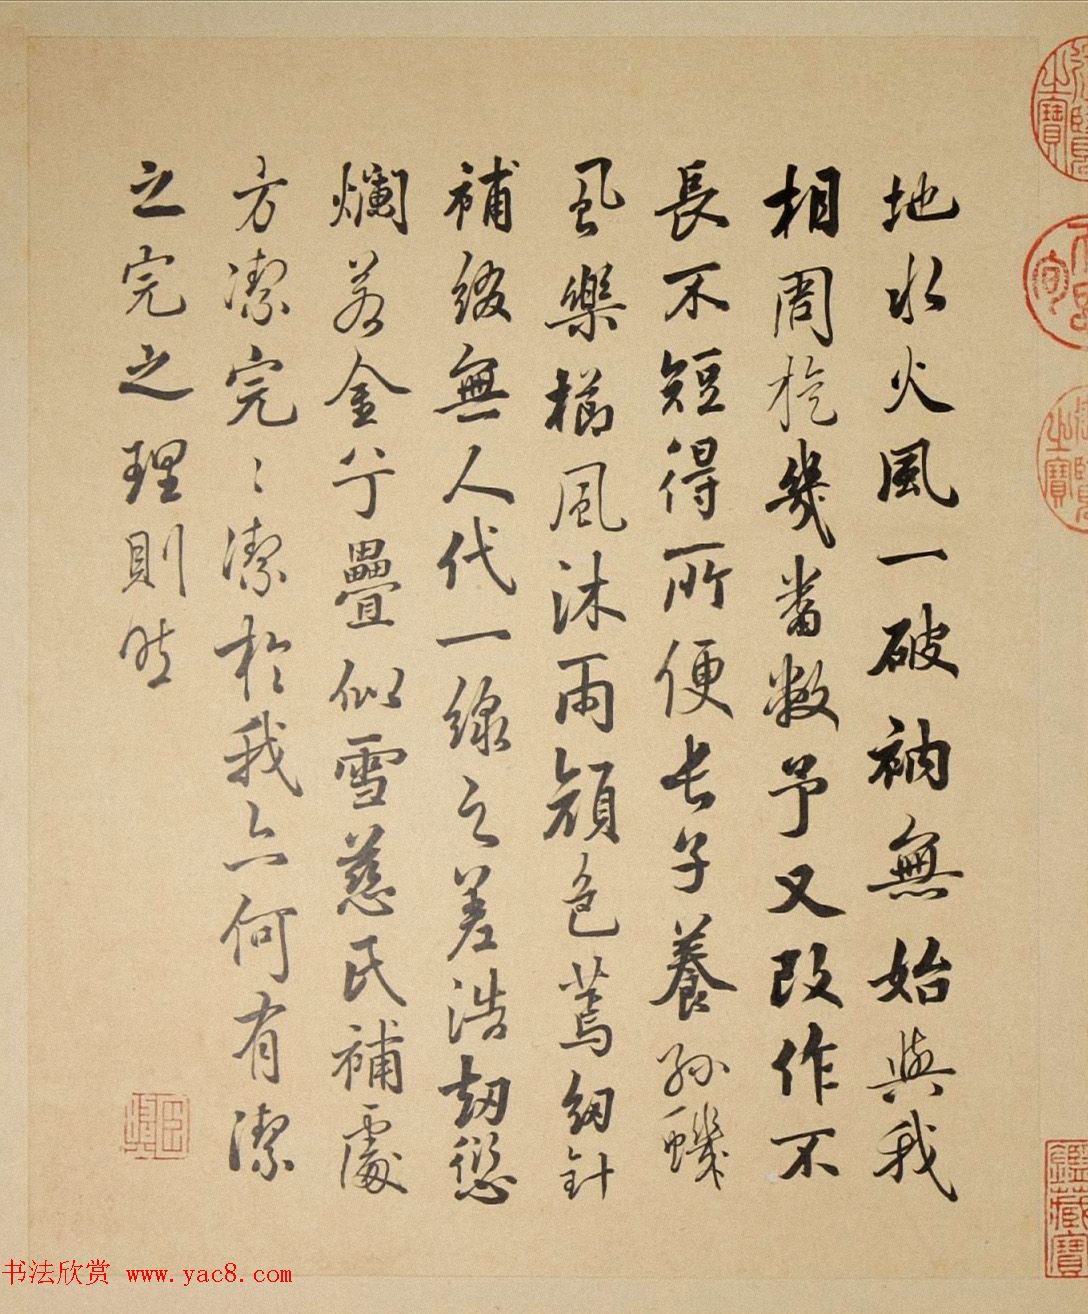 地水火風一破衲無始與我
相周旋幾番敝予又改作不
長不短得所便長子養孫蟣
虱樂櫛風沐雨顏色蔫細針
補綴無人代一線之差浩劫愆
爛若金兮疊似雪慈氏補處
方潔完〻潔於我亦何有潔
之完之理則然
鑑藏寶
书法欣赏 www.yac8.com